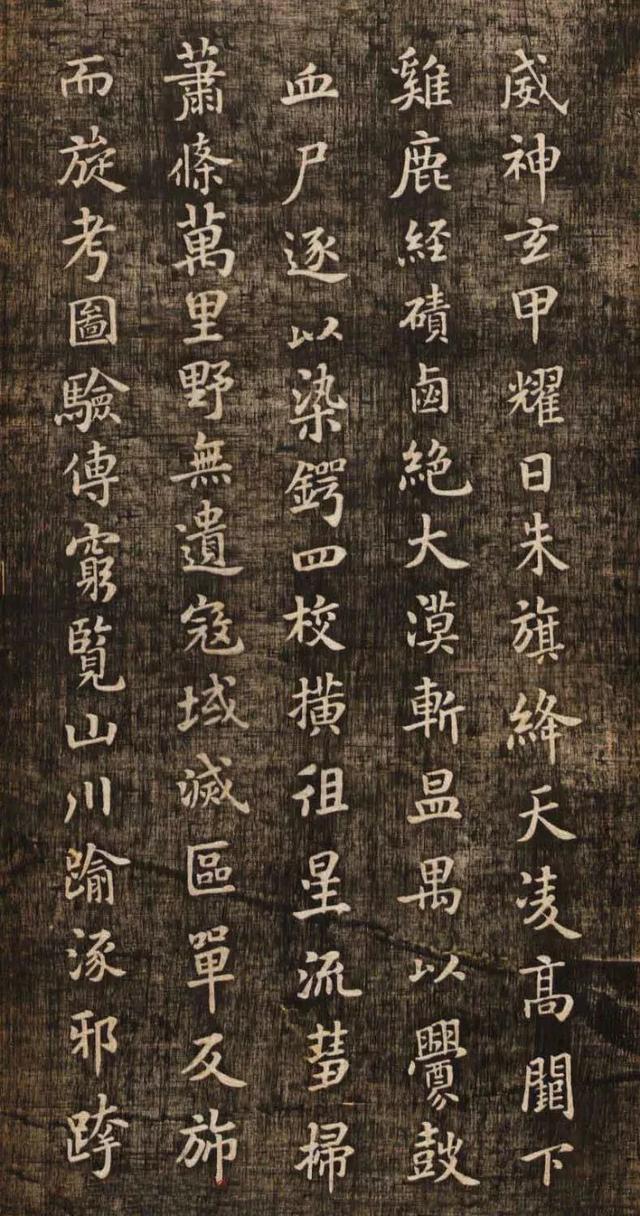 威神玄甲耀日朱旗絳天凌高闕下
雞鹿経磧鹵絶大漠斬昷禺以釁鼓
血尸逐以染鍔四校撗徂星流彗掃
蕭條萬里野無遺寇域滅區單反旆
而旋考圖驗傳窮覽山川踰涿邪跨